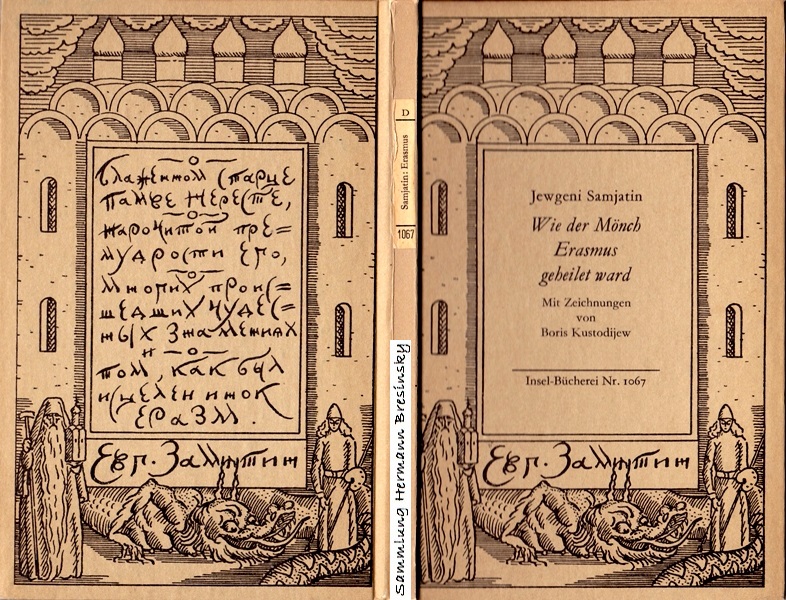 О
Блаженном Старце
Памве Нересте,
О
нарочитой пре=
мудрости его,
О
многих проис=
шедших чудес=
ных знамениях
и О
том, как был
исцелен инок
Еразм.
Евг. Замятин
D
Samjatin: Erasmus
1067
Sammlung Hermann Bresinsky
Jewgeni Samjatin
Wie der Mönch
Erasmus
geheilet ward
Mit Zeichnungen
von
Boris Kustodijew
Insel-Bücherei Nr. 1067
Евг. Замятин